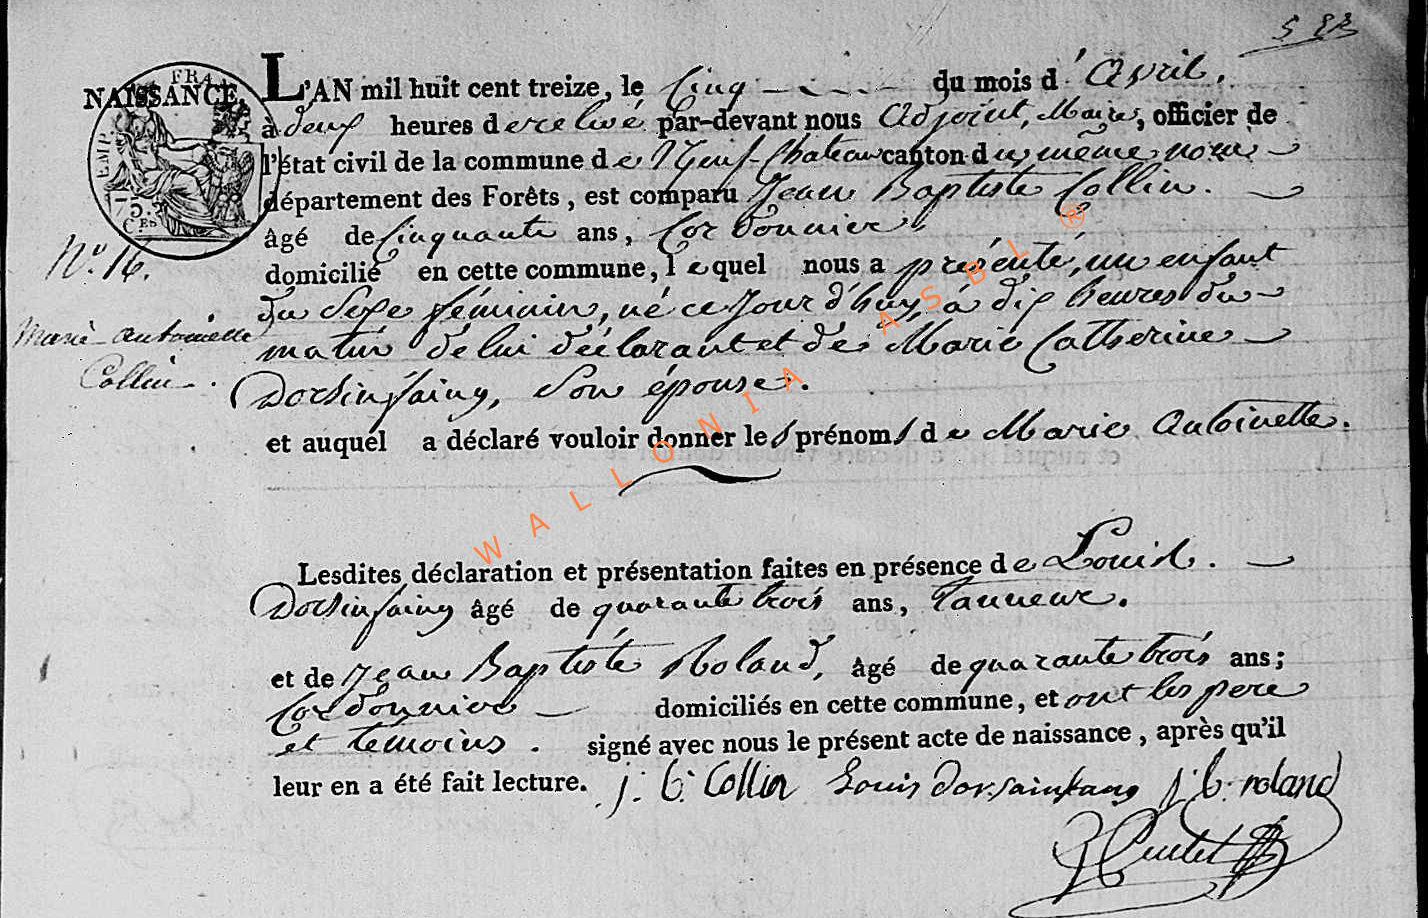 NAISSANCE.
FRA
EMP.
75.
CES
L'AN mil huit cent treize, le Cinq du mois d'Avril.
à deux heures de relevé par-devant nous Adjoint, Maire, officier de
l'état civil de la commune de Neuf-Chateau canton du même nom
département des Forêts, est comparu Jean Baptiste Collin.
âgé de Cinquante ans, Cordonnier,
N.° 16.
domicilié en cette commune, lequel nous a présenté, un enfant
du Sexe féminin, né ce Jour d'huy, à dix heures du
Marie Antoinette
Collin.
matin de lui déclarant et de Marie Catherine
Dorsinfaing, Son épouse.
et auquel a déclaré vouloir donner les prénoms de Marie Antoinette.
Lesdites déclaration et présentation faites en présence de Louis.
Dorsinfaing âgé de quarante trois ans, Tanneur.
et de Jean Baptiste Roland, âgé de quarante trois ans;
Cordonnier domiciliés en cette commune, et ont les pere
et temoins. signé avec nous le présent acte de naissance, après qu'il
leur en a été fait lecture. j. b. Collin Louis Dorsainfang j. b. roland
WALLONIA ASBL ®